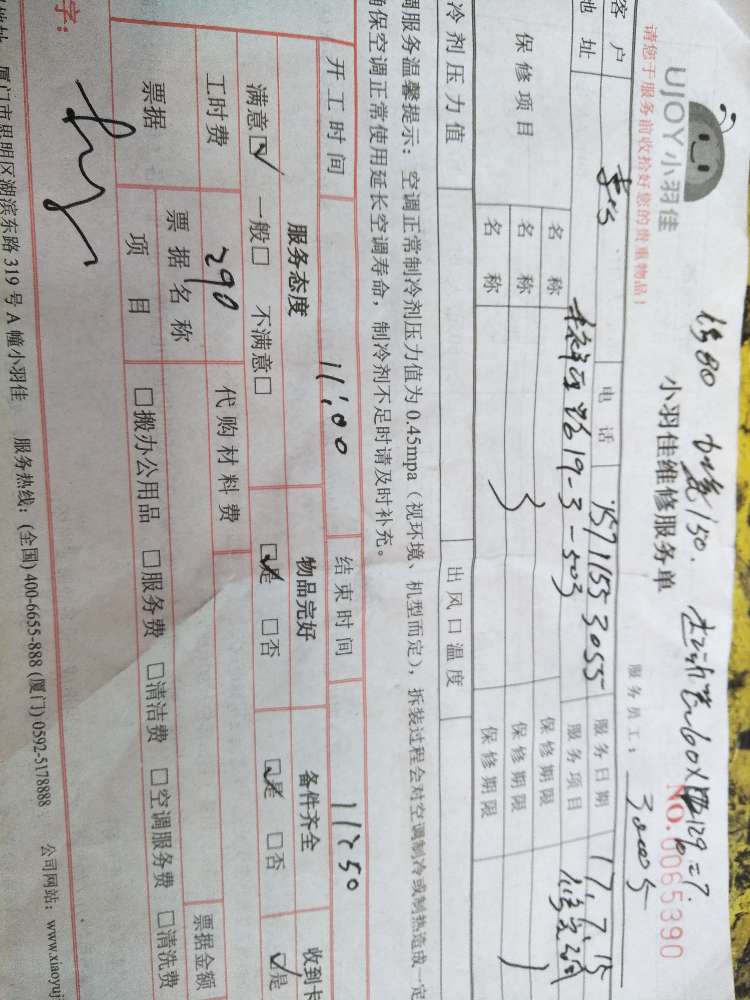 UJOY 小羽佳
小羽佳维修服务单
请您于服务前收拾好您的贵重物品！
服务员工：
30005
NO.0065390
客户
电话
15711553055
服务日期
17.7.15
地址
19-3-503
服务项目
保修项目
名称
保修期限
名称
保修期限
名称
保修期限
冷剂压力值
出风口温度
调服务温馨提示：空调正常制冷剂压力值为0.45mpa（视环境、机型而定），拆装过程会对空调制冷或制热造成一定
确保空调正常使用延长空调寿命，制冷剂不足时请及时补充。
开工时间
11:00
结束时间
11:50
服务态度
物品完好
备件齐全
收到卡
满意☑ 一般□ 不满意□
☑是 □否
☑是 □否
☑是
工时费
290
代购材料费
票据
票据名称
票据金额
项目
□搬办公用品 □服务费 □清洁费 □空调服务费 □清洗费
字：
厦门市思明区湖滨东路 319 号 A 幢小羽佳 服务热线：(全国) 400-6655-888 (厦门) 0592-5178888 公司网站：www.xiaoyuj